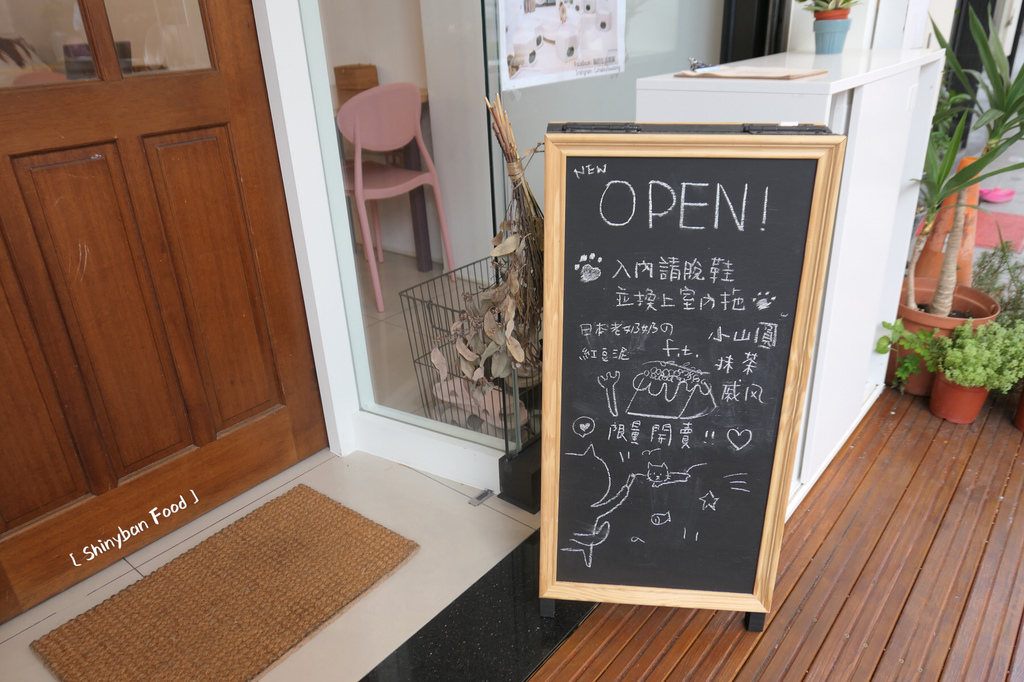 NEW
OPEN!
入內請脫鞋
並換上室內拖
日本老奶奶の
紅豆泥
f.t.
小山園
抹茶
戚风
限量開賣!!
[ Shinyban Food ]